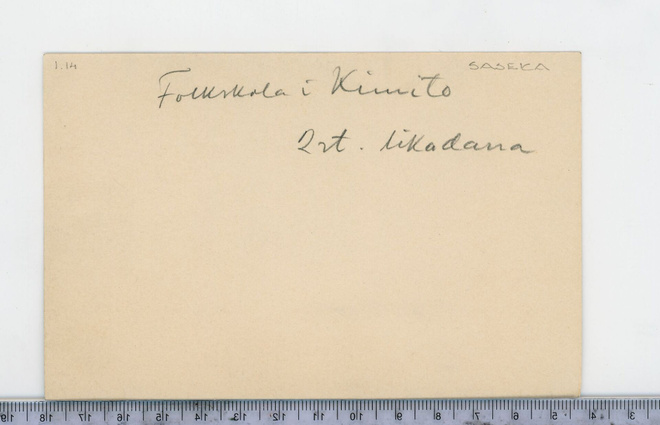 1.14
SASEKA
Folkskola i Kimito
2 st. likadana
19 18 17 16 15 14 13 12 11 10 9 8 7 6 5 4 3